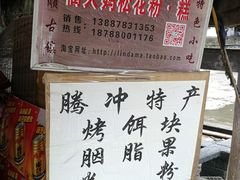 松花粉·糕
特色小吃
顺古镇
销售：13887831353
热线：18788001176
淘宝网址：http://lindama.taobao.com
腾冲特产
烤饵块
胭脂果粉